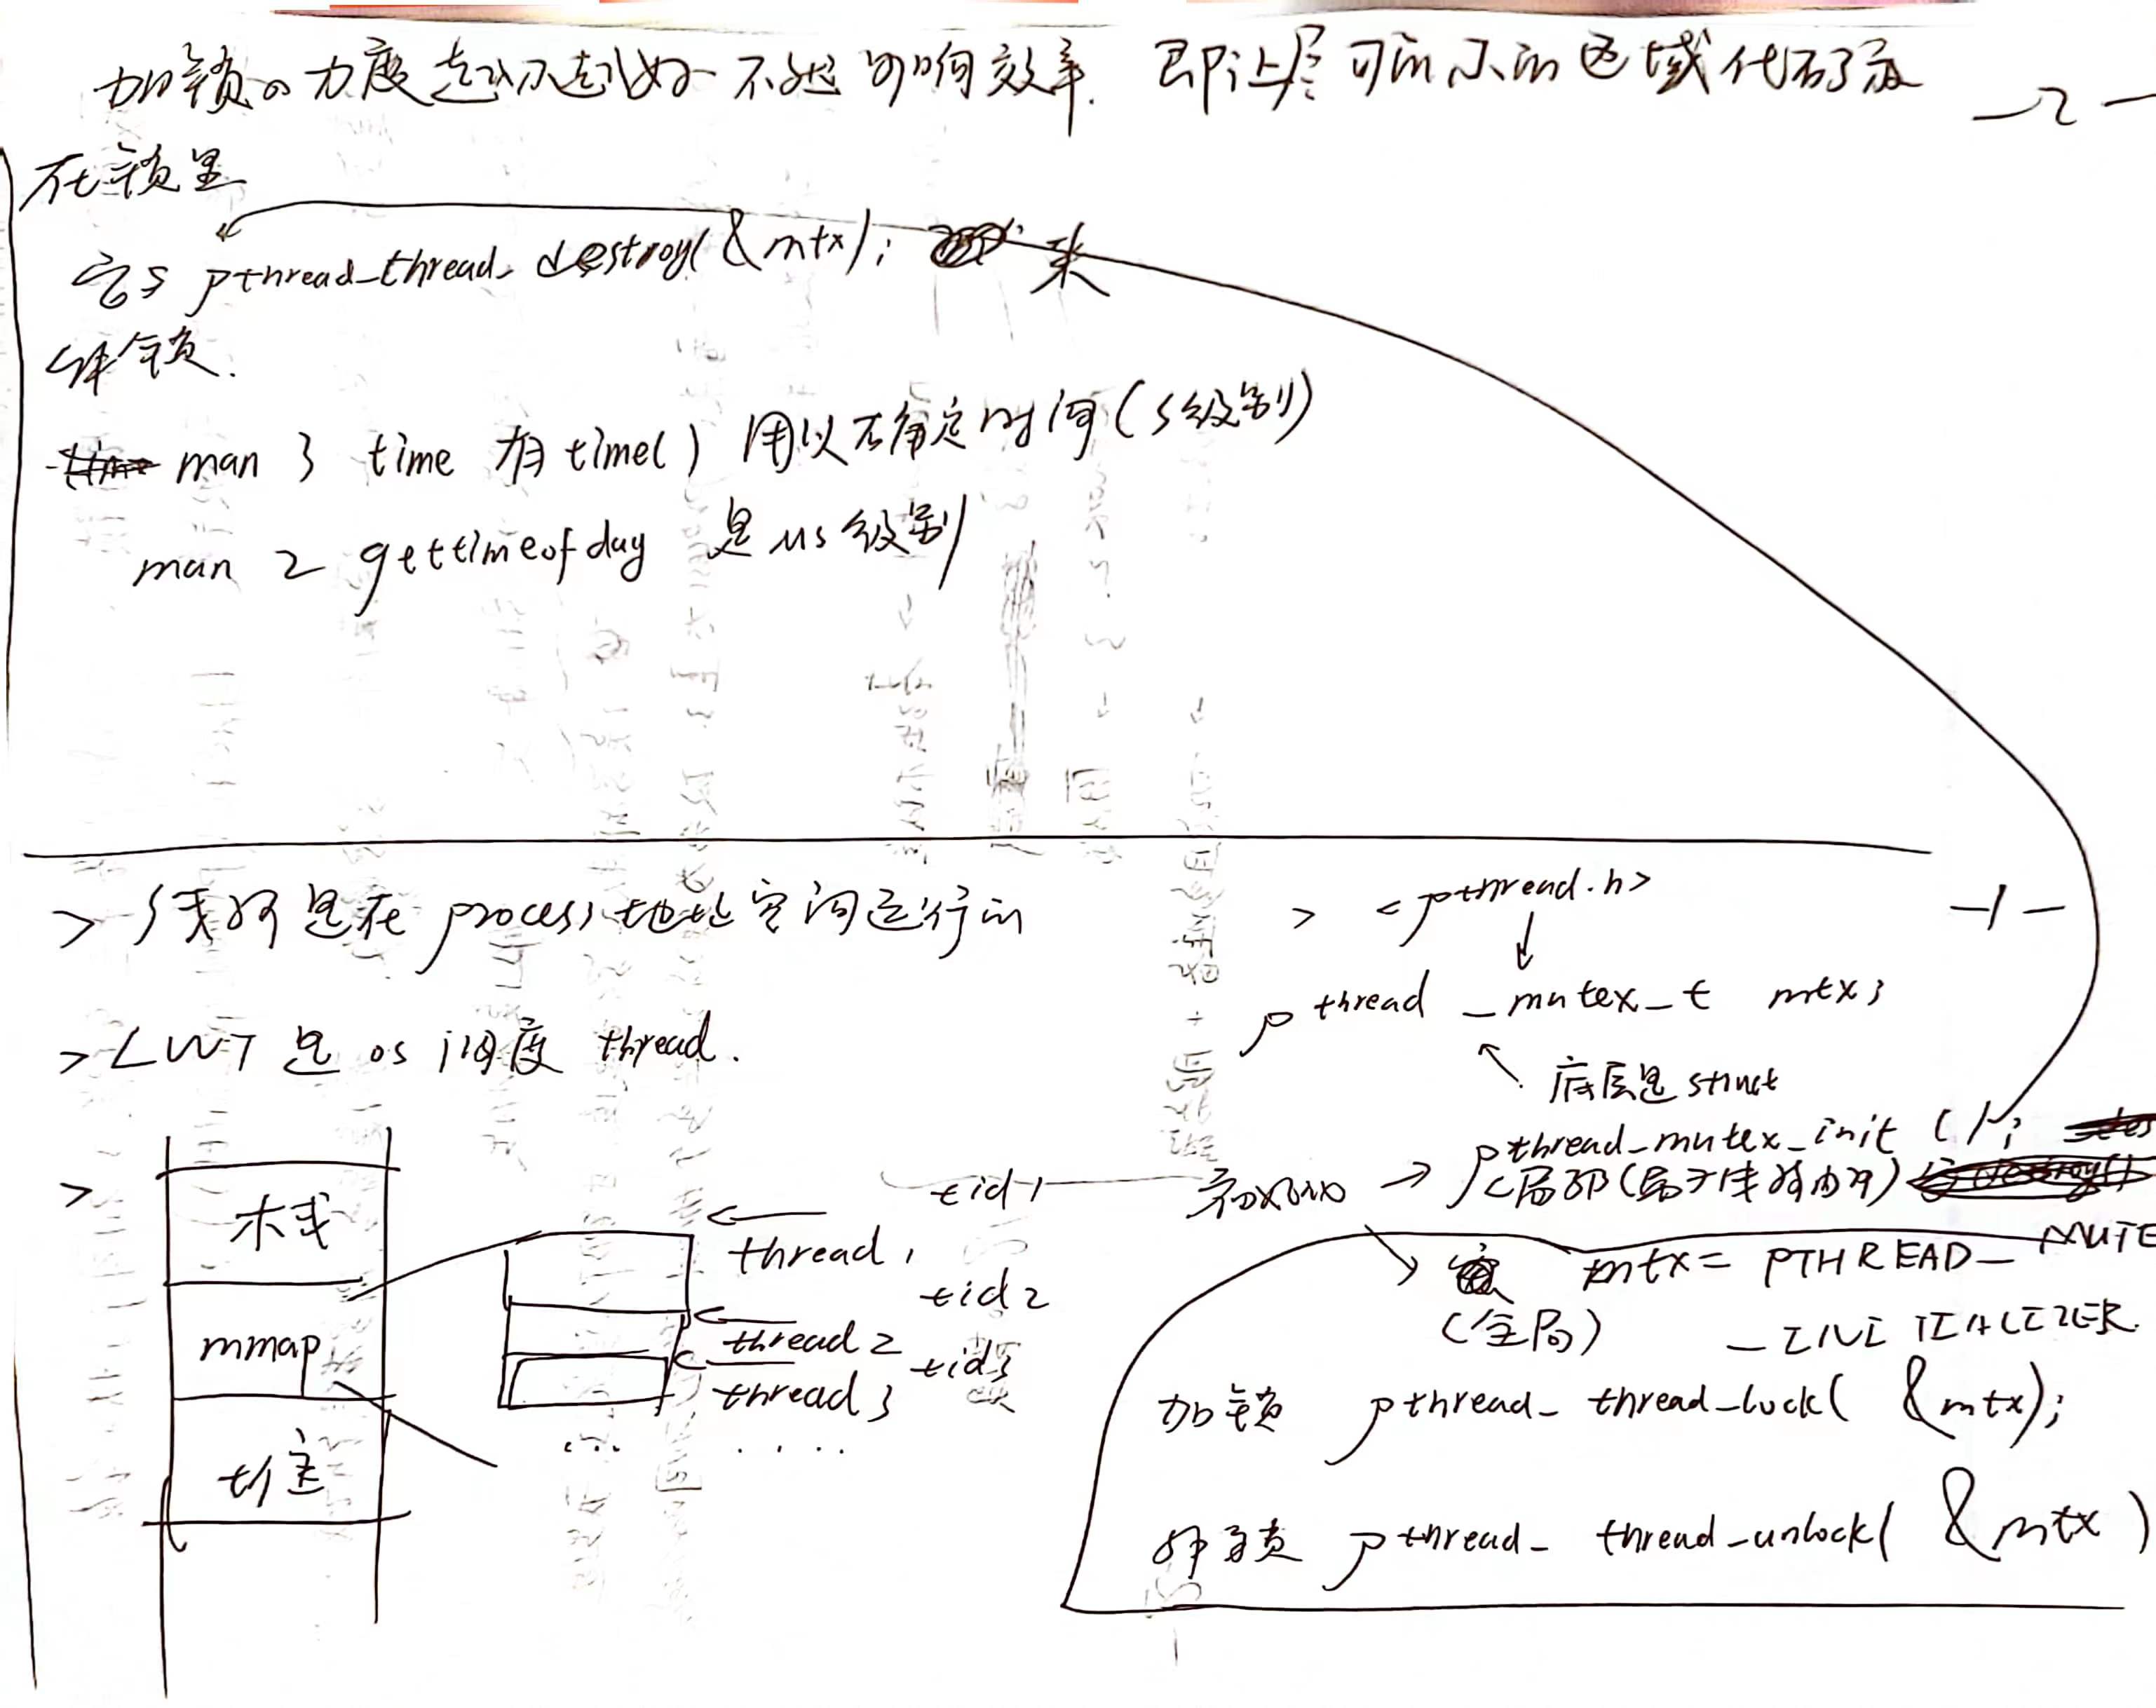 加锁的力度越小越好 不然影响效率. 即让尽可能小的区域代码放
-2-
在锁里
它与 pthread_thread_destroy(&mtx); 来
解锁.
man 3 time 有 time() 用以确定时间(s级别)
man 2 gettimeofday 是us级别
> 线程是在 process 地址空间运行的
> LWT 是 os 调度 thread.
>
栈
mmap
堆
tid1
thread1
tid2
thread2
tid3
thread3
... ....
> <pthread.h>
-1-
↓
pthread_mutex_t mtx;
底层是struct
初始化 → pthread_mutex_init();
局部(属于线程内的)
mtx = PTHREAD_MUTE
(全局) _INITIALIZER.
加锁 pthread_thread_lock( &mtx);
解锁 pthread_thread_unlock( &mtx)